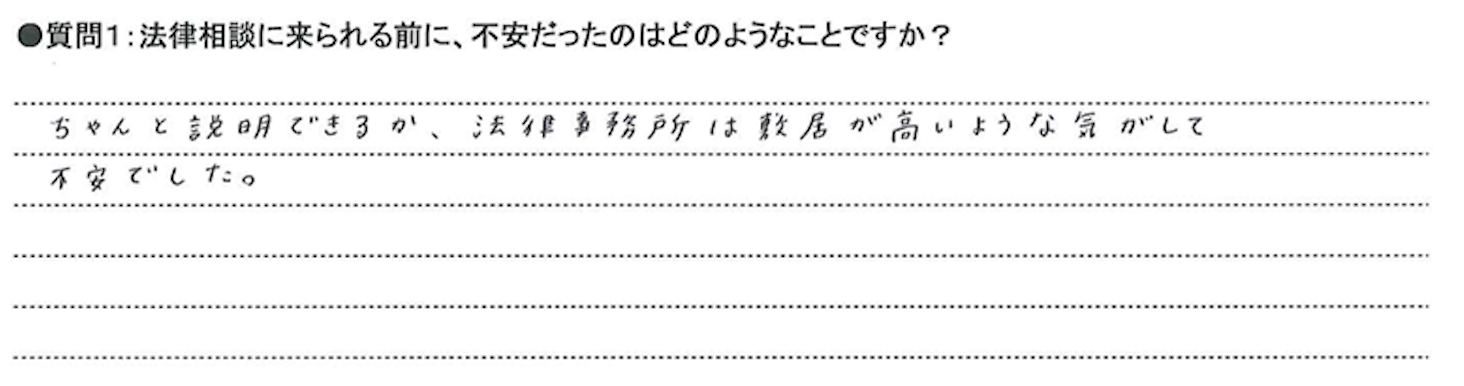 ●質問1:法律相談に来られる前に、不安だったのはどのようなことですか?
ちゃんと説明できるか、法律事務所は敷居が高いような気がして
不安でした。